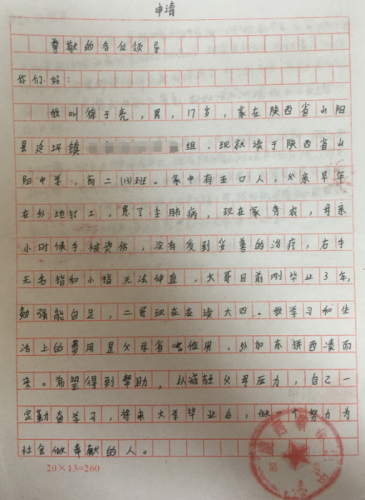 申请
尊敬的各位领导
你们好:
我叫徐于亮,男,17岁,家在陕西省山阳
县延坪镇 组,现就读于陕西省山
阳中学,高二(10)班。家中有五口人,父亲早年
在外地打工,患了尘肺病,现在家务农,母亲
小时候手被烫伤,没有受到妥善的治疗,右手
无名指和小指无法伸直,大哥目前刚毕业3年,
勉强能自足,二哥现在在读大四。我学习和生
活上的费用是父母省吃俭用,外加东拼西凑而
来。希望得到帮助,以减轻父母压力,自己一
定勤奋学习,将来大学毕业后,做一个努力为
社会做奉献的人。
20×13=260